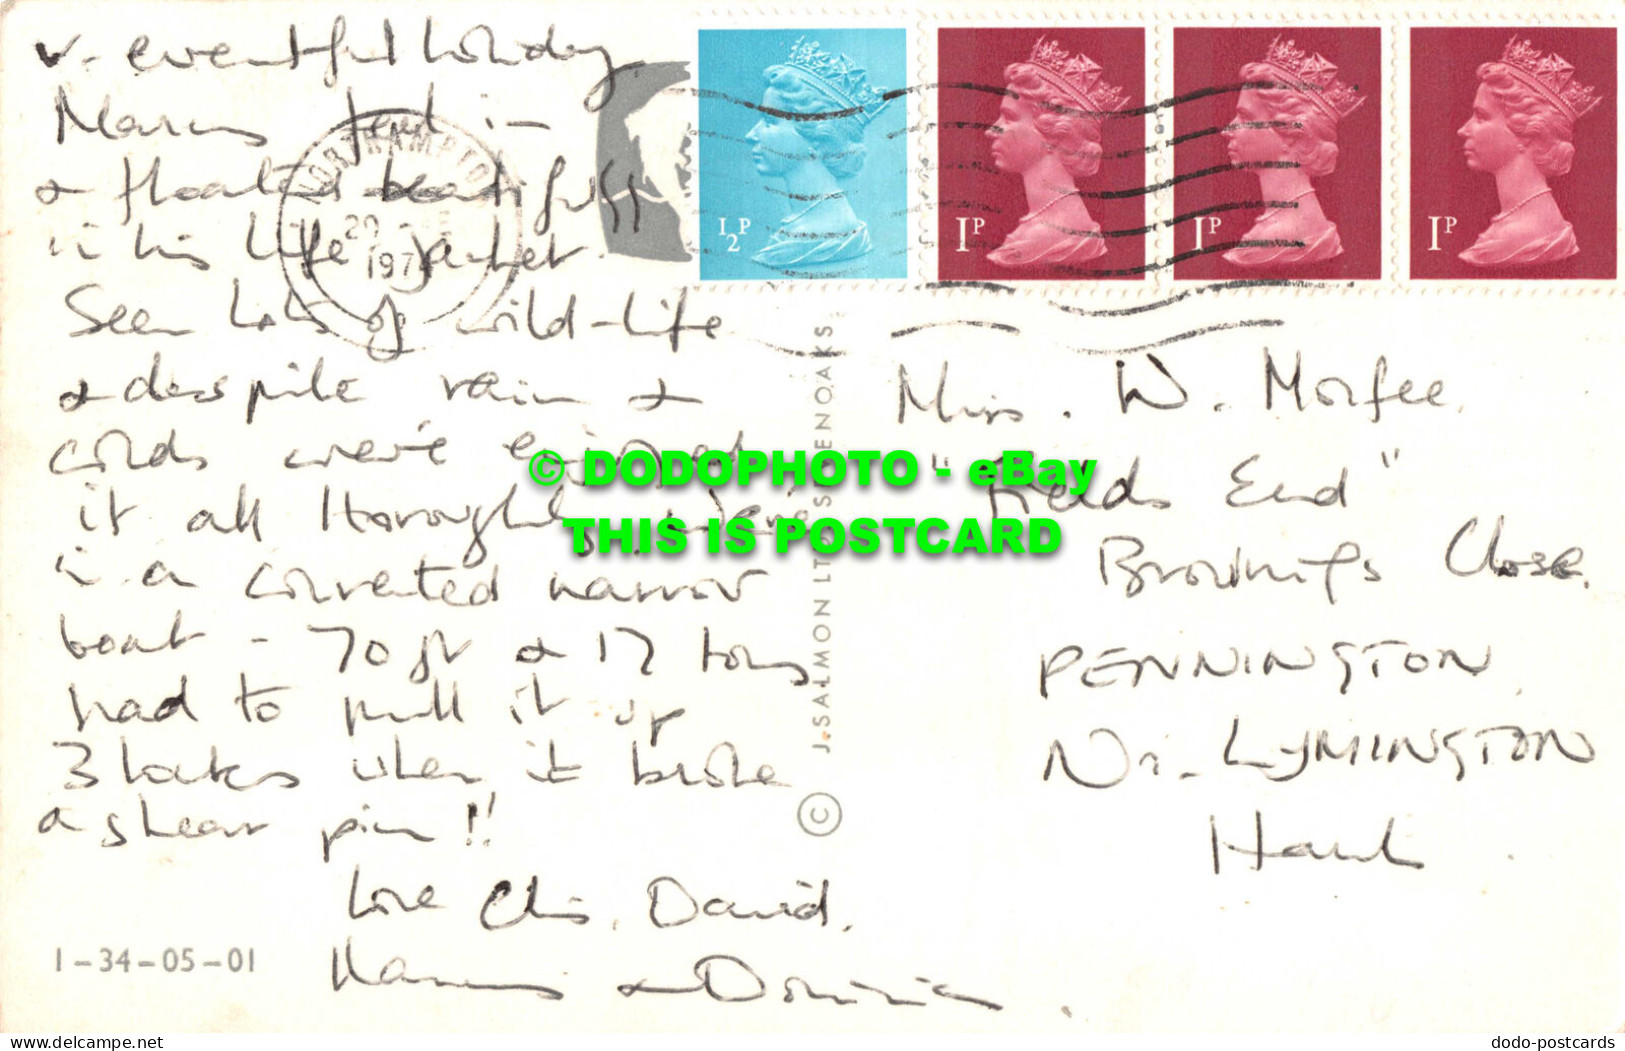 v. eventful holiday
Marcus fell in
& floated beautifully
in his life jacket.
Seen lots of wild-life
& despite rain &
colds we've enjoyed
it all thoroughly. We're
in a converted narrow
boat - 70 ft & 17 tons
had to pull it up
3 locks when it broke
a shear pin!!
Love Chris, David,
Marcus & Dominic.
1-34-05-01
NORTHAMPTON
1/2P
1P
1P
1P
J. SALMON LTD., SEVENOAKS
©
Miss. W. Morfee.
"Fields End"
Brownings Close.
PENNINGTON,
Nr. LYMINGTON
Hants
© DODOPHOTO - eBay
THIS IS POSTCARD
DODO photo-postcards for delcampe.net
dodo-postcards